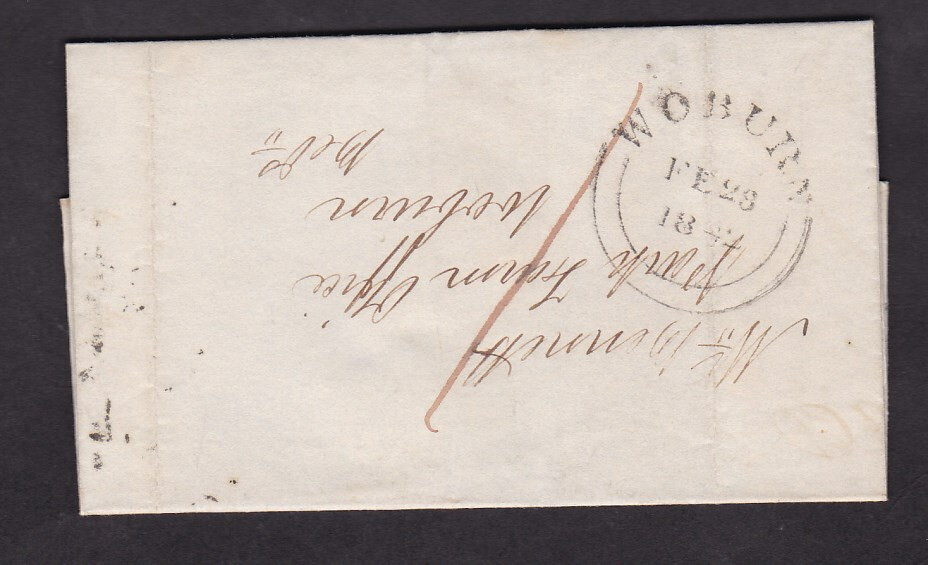 WOBURN
FE 28
184
Mr. Bennett
Park Farm Office
Woburn
Beds